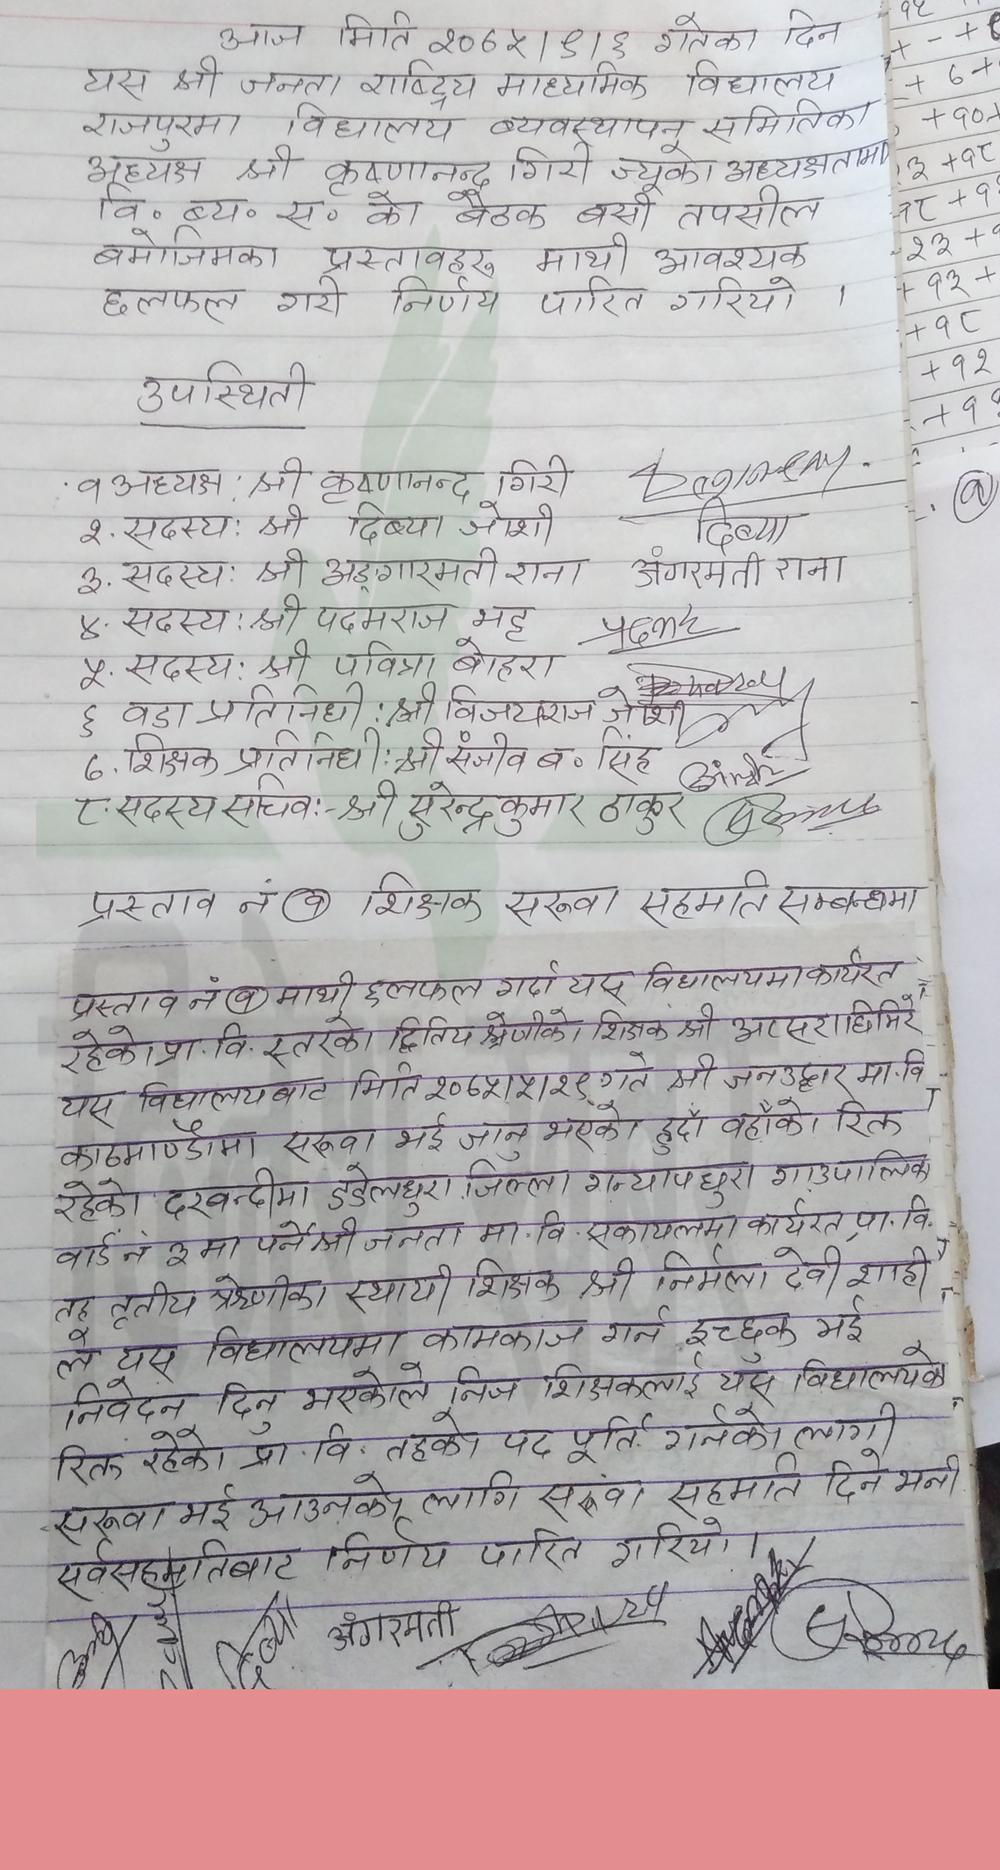 आज मिति २०७५।९।६ गतेका दिन
यस श्री जनता राष्ट्रिय माध्यमिक विद्यालय
राजपुरमा विद्यालय व्यवस्थापन समितिका
अध्यक्ष श्री कृष्णानन्द गिरी ज्यूको अध्यक्षतामा
वि॰ ब्य॰ स॰ को बैठक बसी तपसील
बमोजिमका प्रस्तावहरु माथी आवश्यक
छलफल गरी निर्णय पारित गरियो ।
उपस्थिती
१ अध्यक्ष: श्री कृष्णानन्द गिरी
२. सदस्य: श्री दिब्या जोशी दिब्या
३. सदस्य: श्री अङ्गारमती राना अंगरमती राना
४. सदस्य: श्री पदमराज भट्ट
५. सदस्य: श्री पवित्रा बोहरा
६ वडा प्रतिनिधी: श्री विजयराज जोशी
७. शिक्षक प्रतिनिधी: श्री संजीव ब॰ सिंह
८. सदस्य सचिव:- श्री सुरेन्द्रकुमार ठाकुर
प्रस्ताव नं (१) शिक्षक सरूवा सहमति सम्बन्धमा
प्रस्ताव नं (१) माथी छलफल गर्दा यस विद्यालयमा कार्यरत
रहेको प्रा.वि. स्तरको द्वितिय श्रेणीको शिक्षक श्री घिमिरे
यस विद्यालयबाट मिति २०७५।५।२९ गते श्री जनउद्धार मा.वि
काठमाण्डौमा सरूवा भई जानु भएको हुदाँ वहाँको रिक्त
रहेको दरवन्दीमा डडेलधुरा जिल्ला गन्यापधुरा गाउपालिक
वार्ड नं ३ मा पर्ने श्री जनता मा.वि. सकायलमा कार्यरत प्रा.वि.
तह तृतीय श्रेणीका स्थायी शिक्षक श्री निर्मला देवी शाही
ले यस विद्यालयमा कामकाज गर्न इच्छुक भई
निवेदन दिनु भएकोले निज शिक्षकलाई यस विद्यालयको
रिक्त रहेको प्रा.वि. तहको पद पूर्ति गर्नको लागी
सरूवा भई आउनको लागि सरूवा सहमति दिने भनी
सर्वसहमतिबाट निर्णय पारित गरियो ।
अंगरमती